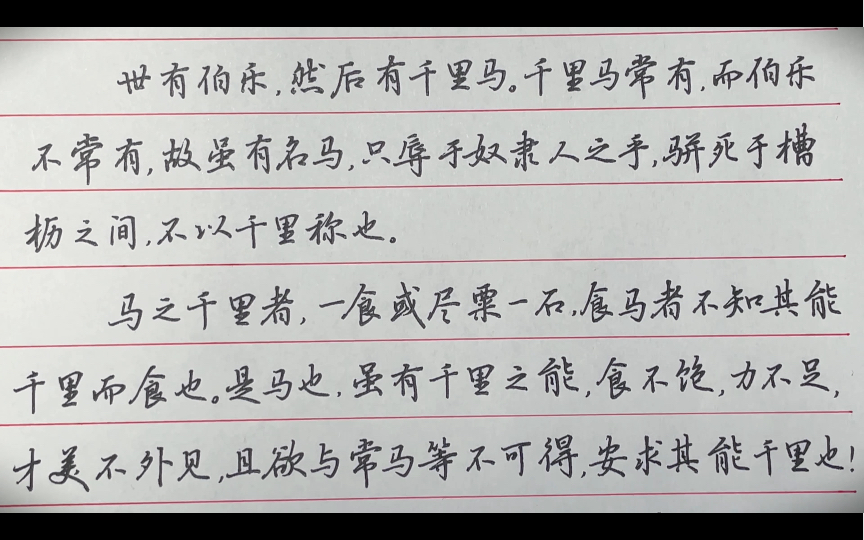 世有伯乐,然后有千里马。千里马常有,而伯乐
不常有,故虽有名马,只辱于奴隶人之手,骈死于槽
枥之间,不以千里称也。
马之千里者,一食或尽粟一石,食马者不知其能
千里而食也。是马也,虽有千里之能,食不饱,力不足,
才美不外见,且欲与常马等不可得,安求其能千里也!